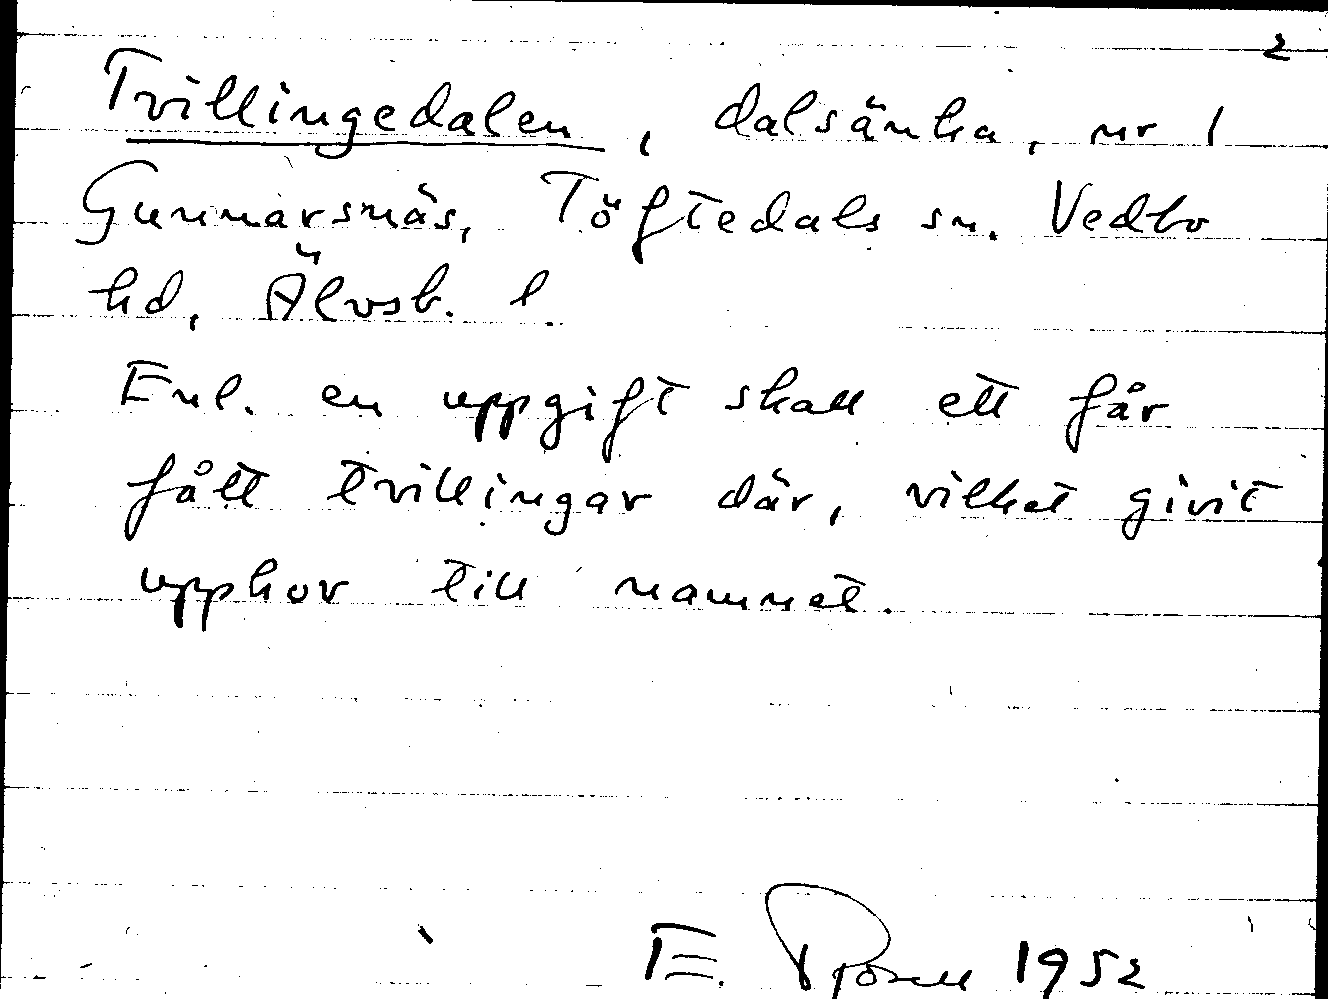 2
Tvillingedalen, dalsänka, nr 1
Gunnarsnäs, Töftedals sn. Vedbo
hd, Älvsb. l.
Enl. en uppgift skall ett får
fått tvillingar där, vilket givit
upphov till namnet.
E. 1952